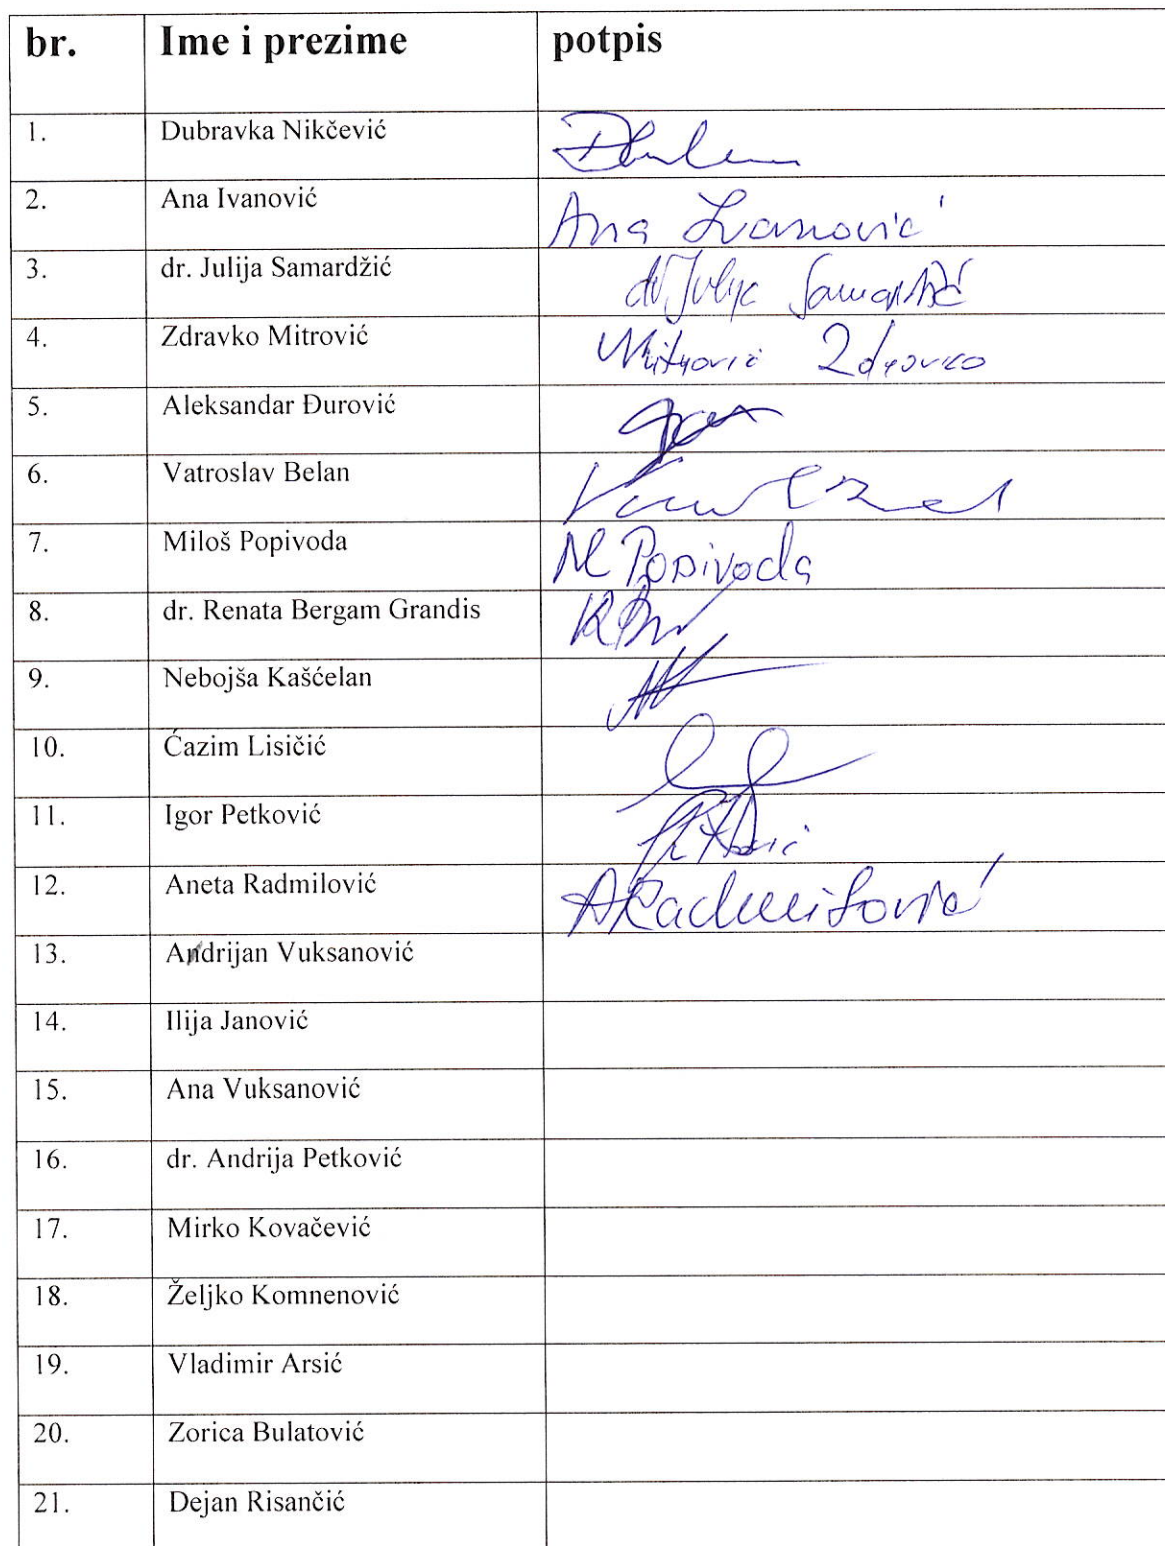 br. Ime i prezime potpis
1. Dubravka Nikčević
2. Ana Ivanović Ana Ivanović
3. dr. Julija Samardžić dr Julija Samardžić
4. Zdravko Mitrović Mitrović Zdravko
5. Aleksandar Đurović
6. Vatroslav Belan
7. Miloš Popivoda M Popivoda
8. dr. Renata Bergam Grandis
9. Nebojša Kašćelan
10. Ćazim Lisičić
11. Igor Petković
12. Aneta Radmilović ARadmilović
13. Andrijan Vuksanović
14. Ilija Janović
15. Ana Vuksanović
16. dr. Andrija Petković
17. Mirko Kovačević
18. Željko Komnenović
19. Vladimir Arsić
20. Zorica Bulatović
21. Dejan Risančić